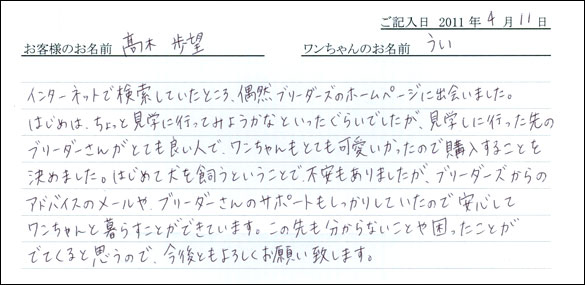 ご記入日 2011年4月11日
お客様のお名前 髙木 歩望 ワンちゃんのお名前 うい
インターネットで検索していたところ、偶然ブリーダーズのホームページに出会いました。
はじめは、ちょっと見学に行ってみようかなといったぐらいでしたが、見学しに行った先の
ブリーダーさんがとても良い人で、ワンちゃんもとても可愛いかったので購入することを
決めました。はじめて犬を飼うということで、不安もありましたが、ブリーダーズからの
アドバイスのメールや、ブリーダーさんのサポートもしっかりしていたので安心して
ワンちゃんと暮らすことができています。この先も分からないことや困ったことが
でてくると思うので、今後ともよろしくお願い致します。